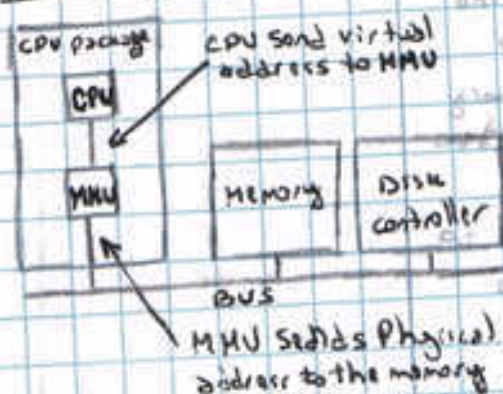 CPU package
CPU send virtual
address to MMU
CPU
MMU
Memory
Disk
controller
BUS
MMU sends Physical
address to the memory